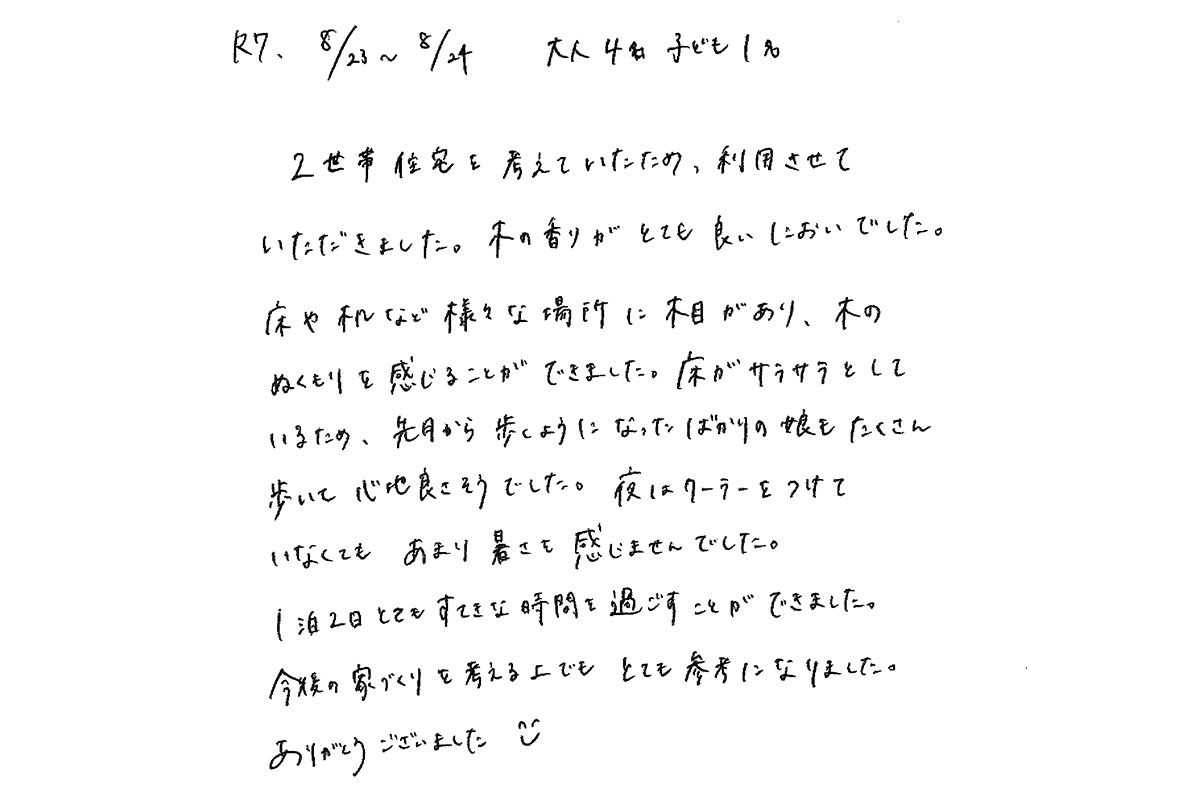 R7、 8/23~8/24 大人4名 子ども1名
2世帯住宅を考えていたため、利用させて
いただきました。木の香りがとても良いにおいでした。
床や机など様々な場所に木目があり、木の
ぬくもりを感じることができました。床がサラサラとして
いるため、先月から歩くようになったばかりの娘もたくさん
歩いて心地良さそうでした。夜はクーラーをつけて
いなくてもあまり暑さを感じませんでした。
1泊2日とてもすてきな時間を過ごすことができました。
今後の家づくりを考える上でもとても参考になりました。
ありがとうございました